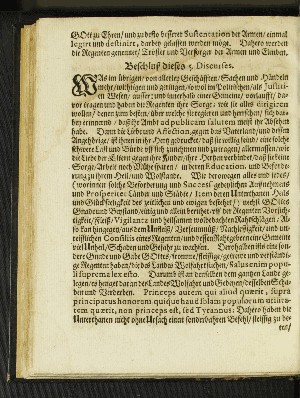 GOtt zu Ehren / und zu desto besserer Sustentation der Armen / einmal
legirt und destinirt, darbey gelassen werden möge. Dahero werden
die Regenten genennet / Tröster und Versorger der Armen und Elenden.
Beschluß dieses 5. Discurses.
WAs im übrigen / von allerley Geschäfften / Sachen und Händeln
mehr / wichtigen und geringen / so wol im Politischen / als Justiti-
en Wesen / ausser und innerhalb einer Gemeine / vorlaufft / da-
vor tragen und haben die Regenten ihre Sorge / wie sie alles dirigiren
wollen / denen zum besten / über welche sie regieren und herrschen / sich dar-
bey erinnernd / daß ihr Ambt ad publicam salutem mest Absehen
habe. Dann die Lieb und Affection, gegen das Vaterland / und dessen
Angehörige / ist ihnen in ihr Hertz gedrucket / daß sie willig seynd / eine solche
schwere Last und Bürde auf sich zunehmen und zutragen / allermassen / wie
die Liebe der Eltern gegen ihre Kinder / ihre Hertzen verbindet / daß sie keine
Sorge / Arbeit noch Mühe sparen / in deren Education, und Beförde-
rung zu ihrem Heil / und Wolstande. Wie deroewegen alles und jedes /
( worinnen solche Beförderung und Success gedeylichen Auffnehmens
und Prosperitet Länder und Städte / Item deren Unterthanen Heils
und Glückseligkeit des zeitlichen und ewigen bestehet / ) nechst GOttes
Gnade und Beystand / einig und allein beruhet auf der Regenten Vorsich-
tigkeit / Fleiß / Vigilantz und heilsamen wolbedachten Rahtschlägen: Al-
so kan hingegen / aus dem Unfleiß / Versäumnüß / Nachlässigkeit / und un-
treifflichen Consiliis eines Regenten / und dessen Rahtgebern einer Gemeine
viel Unheil / Schaden und Gefahr zuwachsen. Derohalben ists eine son-
dere Gnade und Gabe GOttes / fromme / fleissige / getreue und verständi-
ge Regenten haben / die das Land es Wolfahrt suchen / Salus enim popu-
li suprema lex esto. Darumb ist an denselben dem gantzen Lande ge-
legen / es hanget daran des Landes Wolfahrt und Gedeyen / desselben Scha-
den und Verderben. Princeps autem qui aliud quærit, supra
principatus honorem quidque haud solam populorum utilita-
tem quærit, non princeps est, sed Tyrannus. Dahero haben die
Unterthanen nicht ohne Ursach einen sonderbahren Befehl / fleissig zu be-
ten /